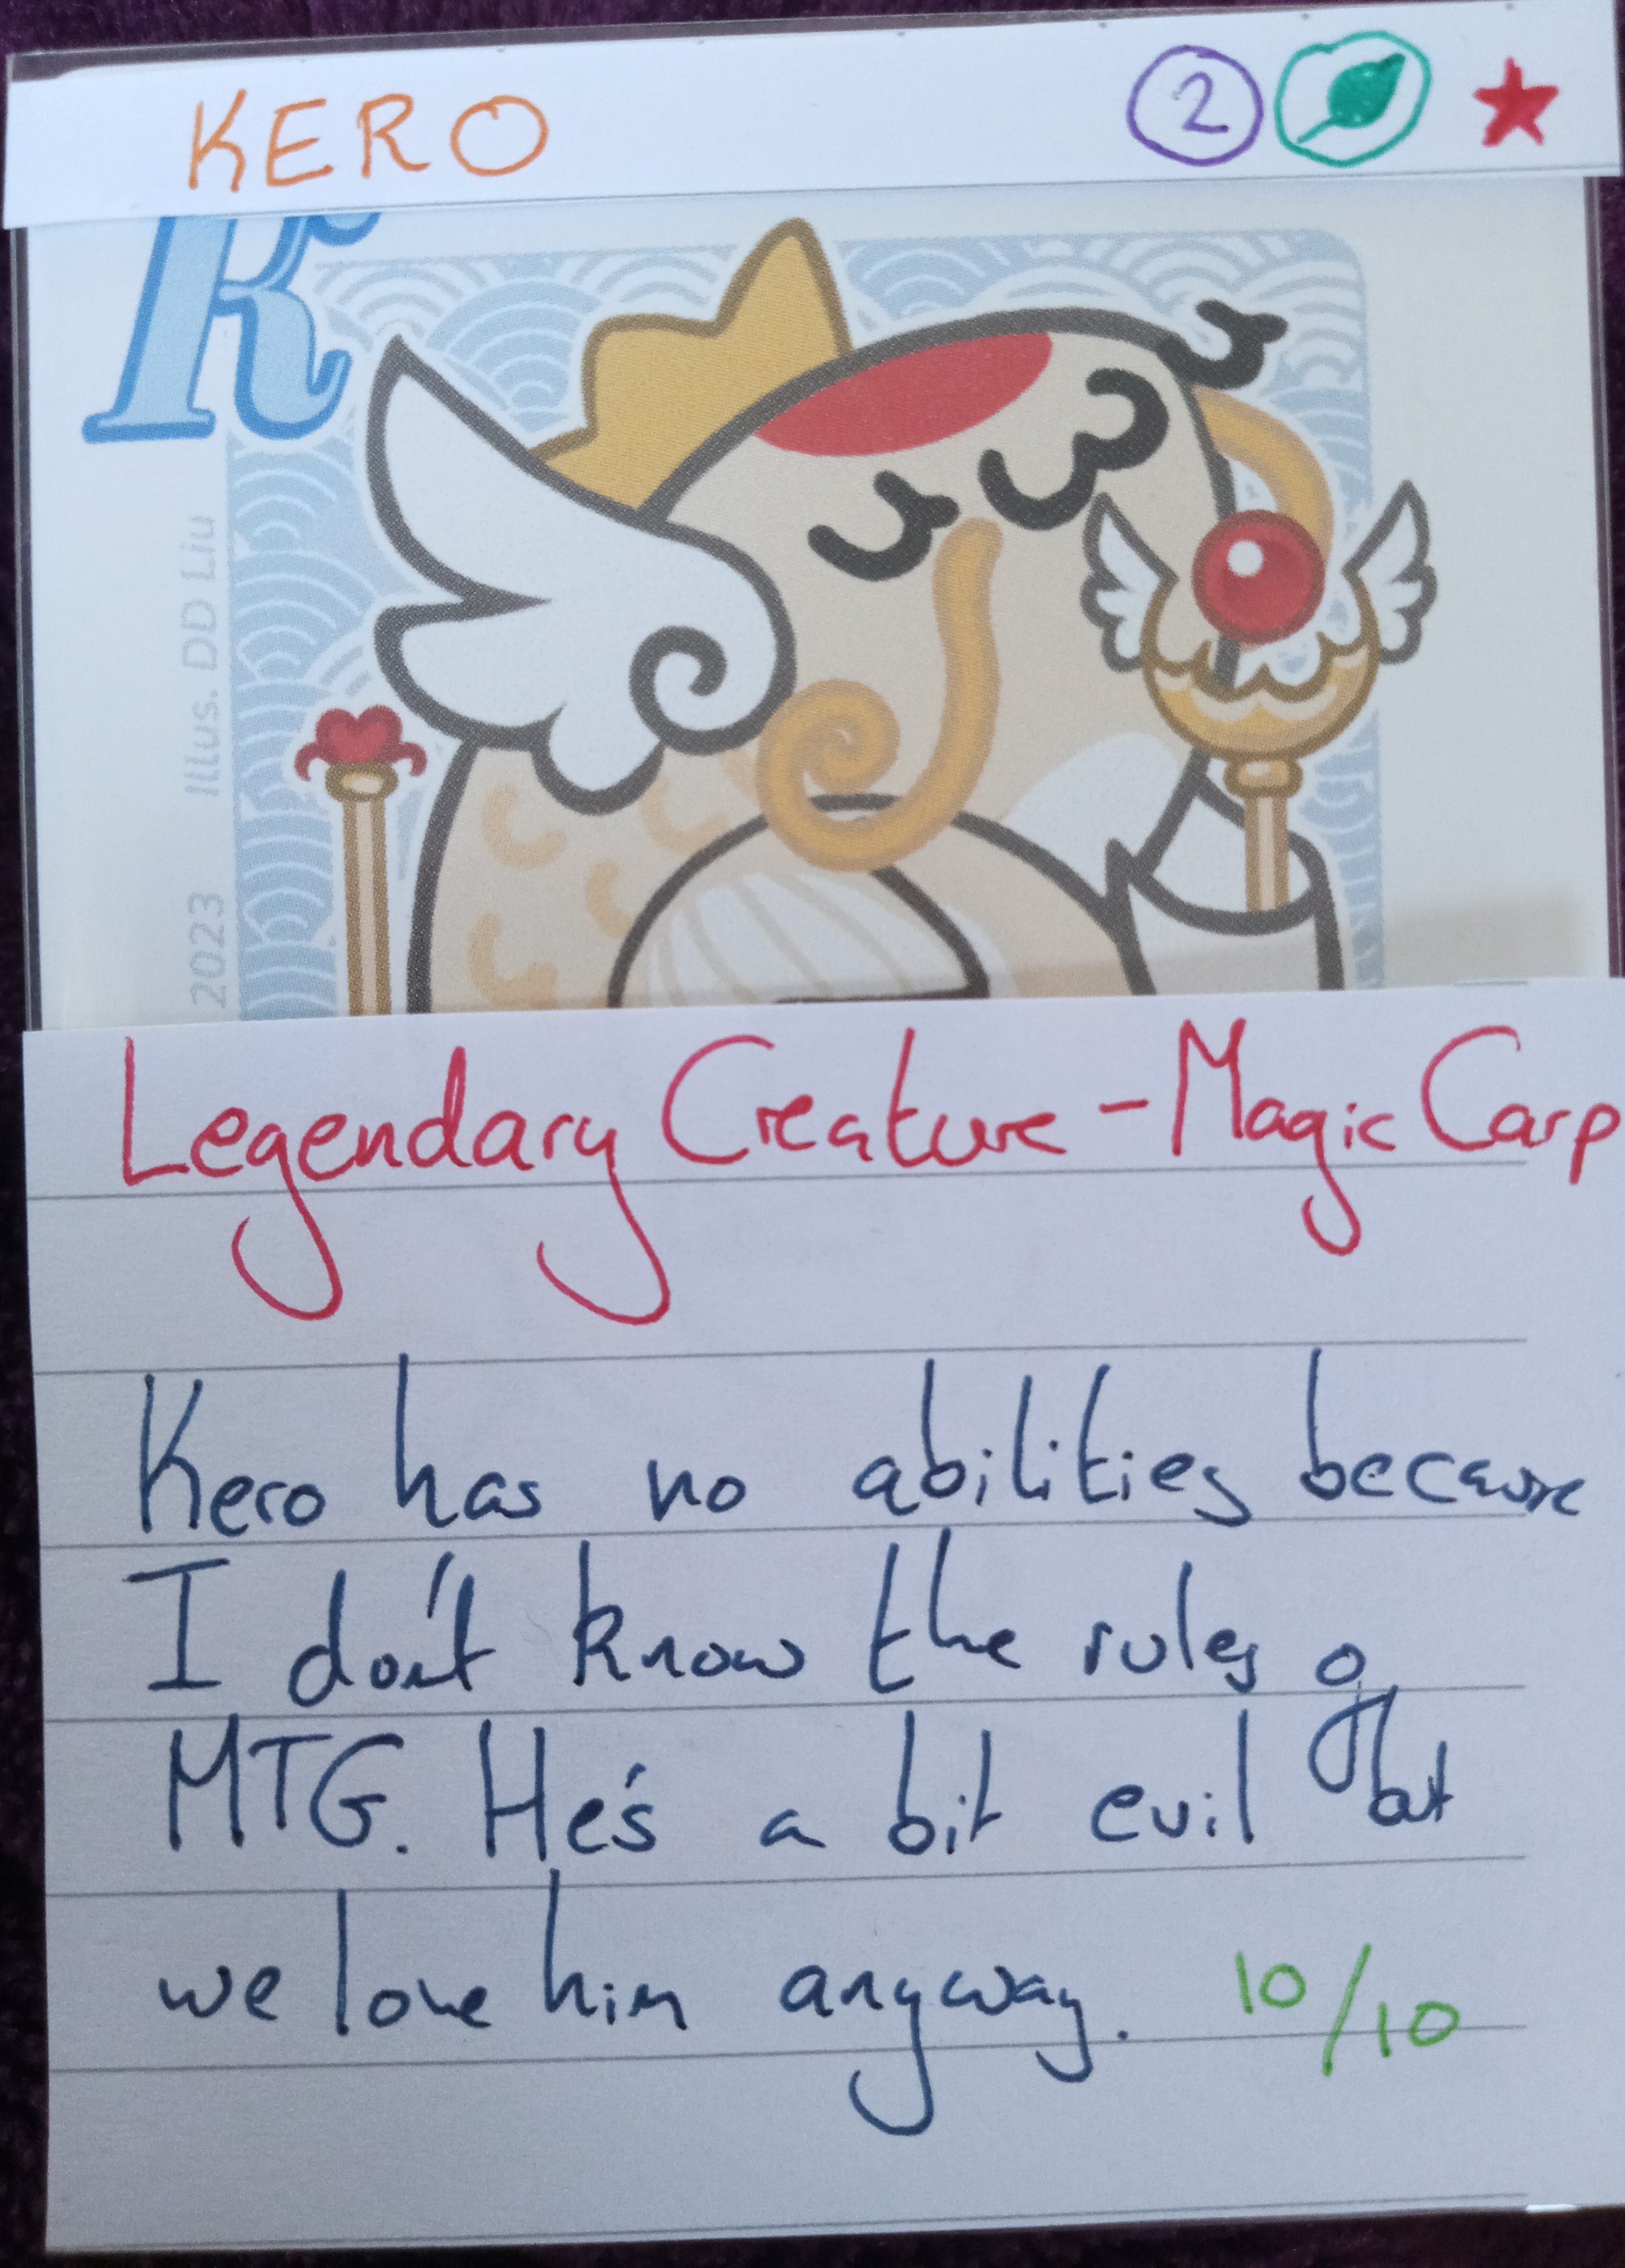 KERO 2
K
Illus. DD Liu
2023
Legendary Creature - Magic Carp
Kero has no abilities because
I don't know the rules of
MTG. He's a bit evil but
we love him anyway. 10/10